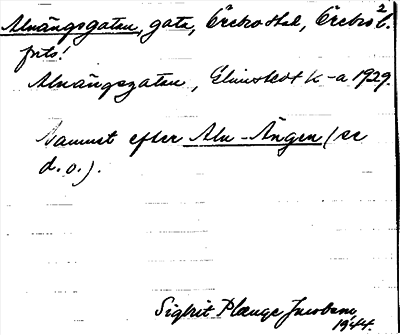 Alnängsgatan, gata, Örebro stad, Örebro l.
forts!
Alnängsgatan, Elmstedt K-a 1929.
Namnet efter Aln-Ängen (se
d.o.).
Sigbrit Plænge Jacobson,
1944.